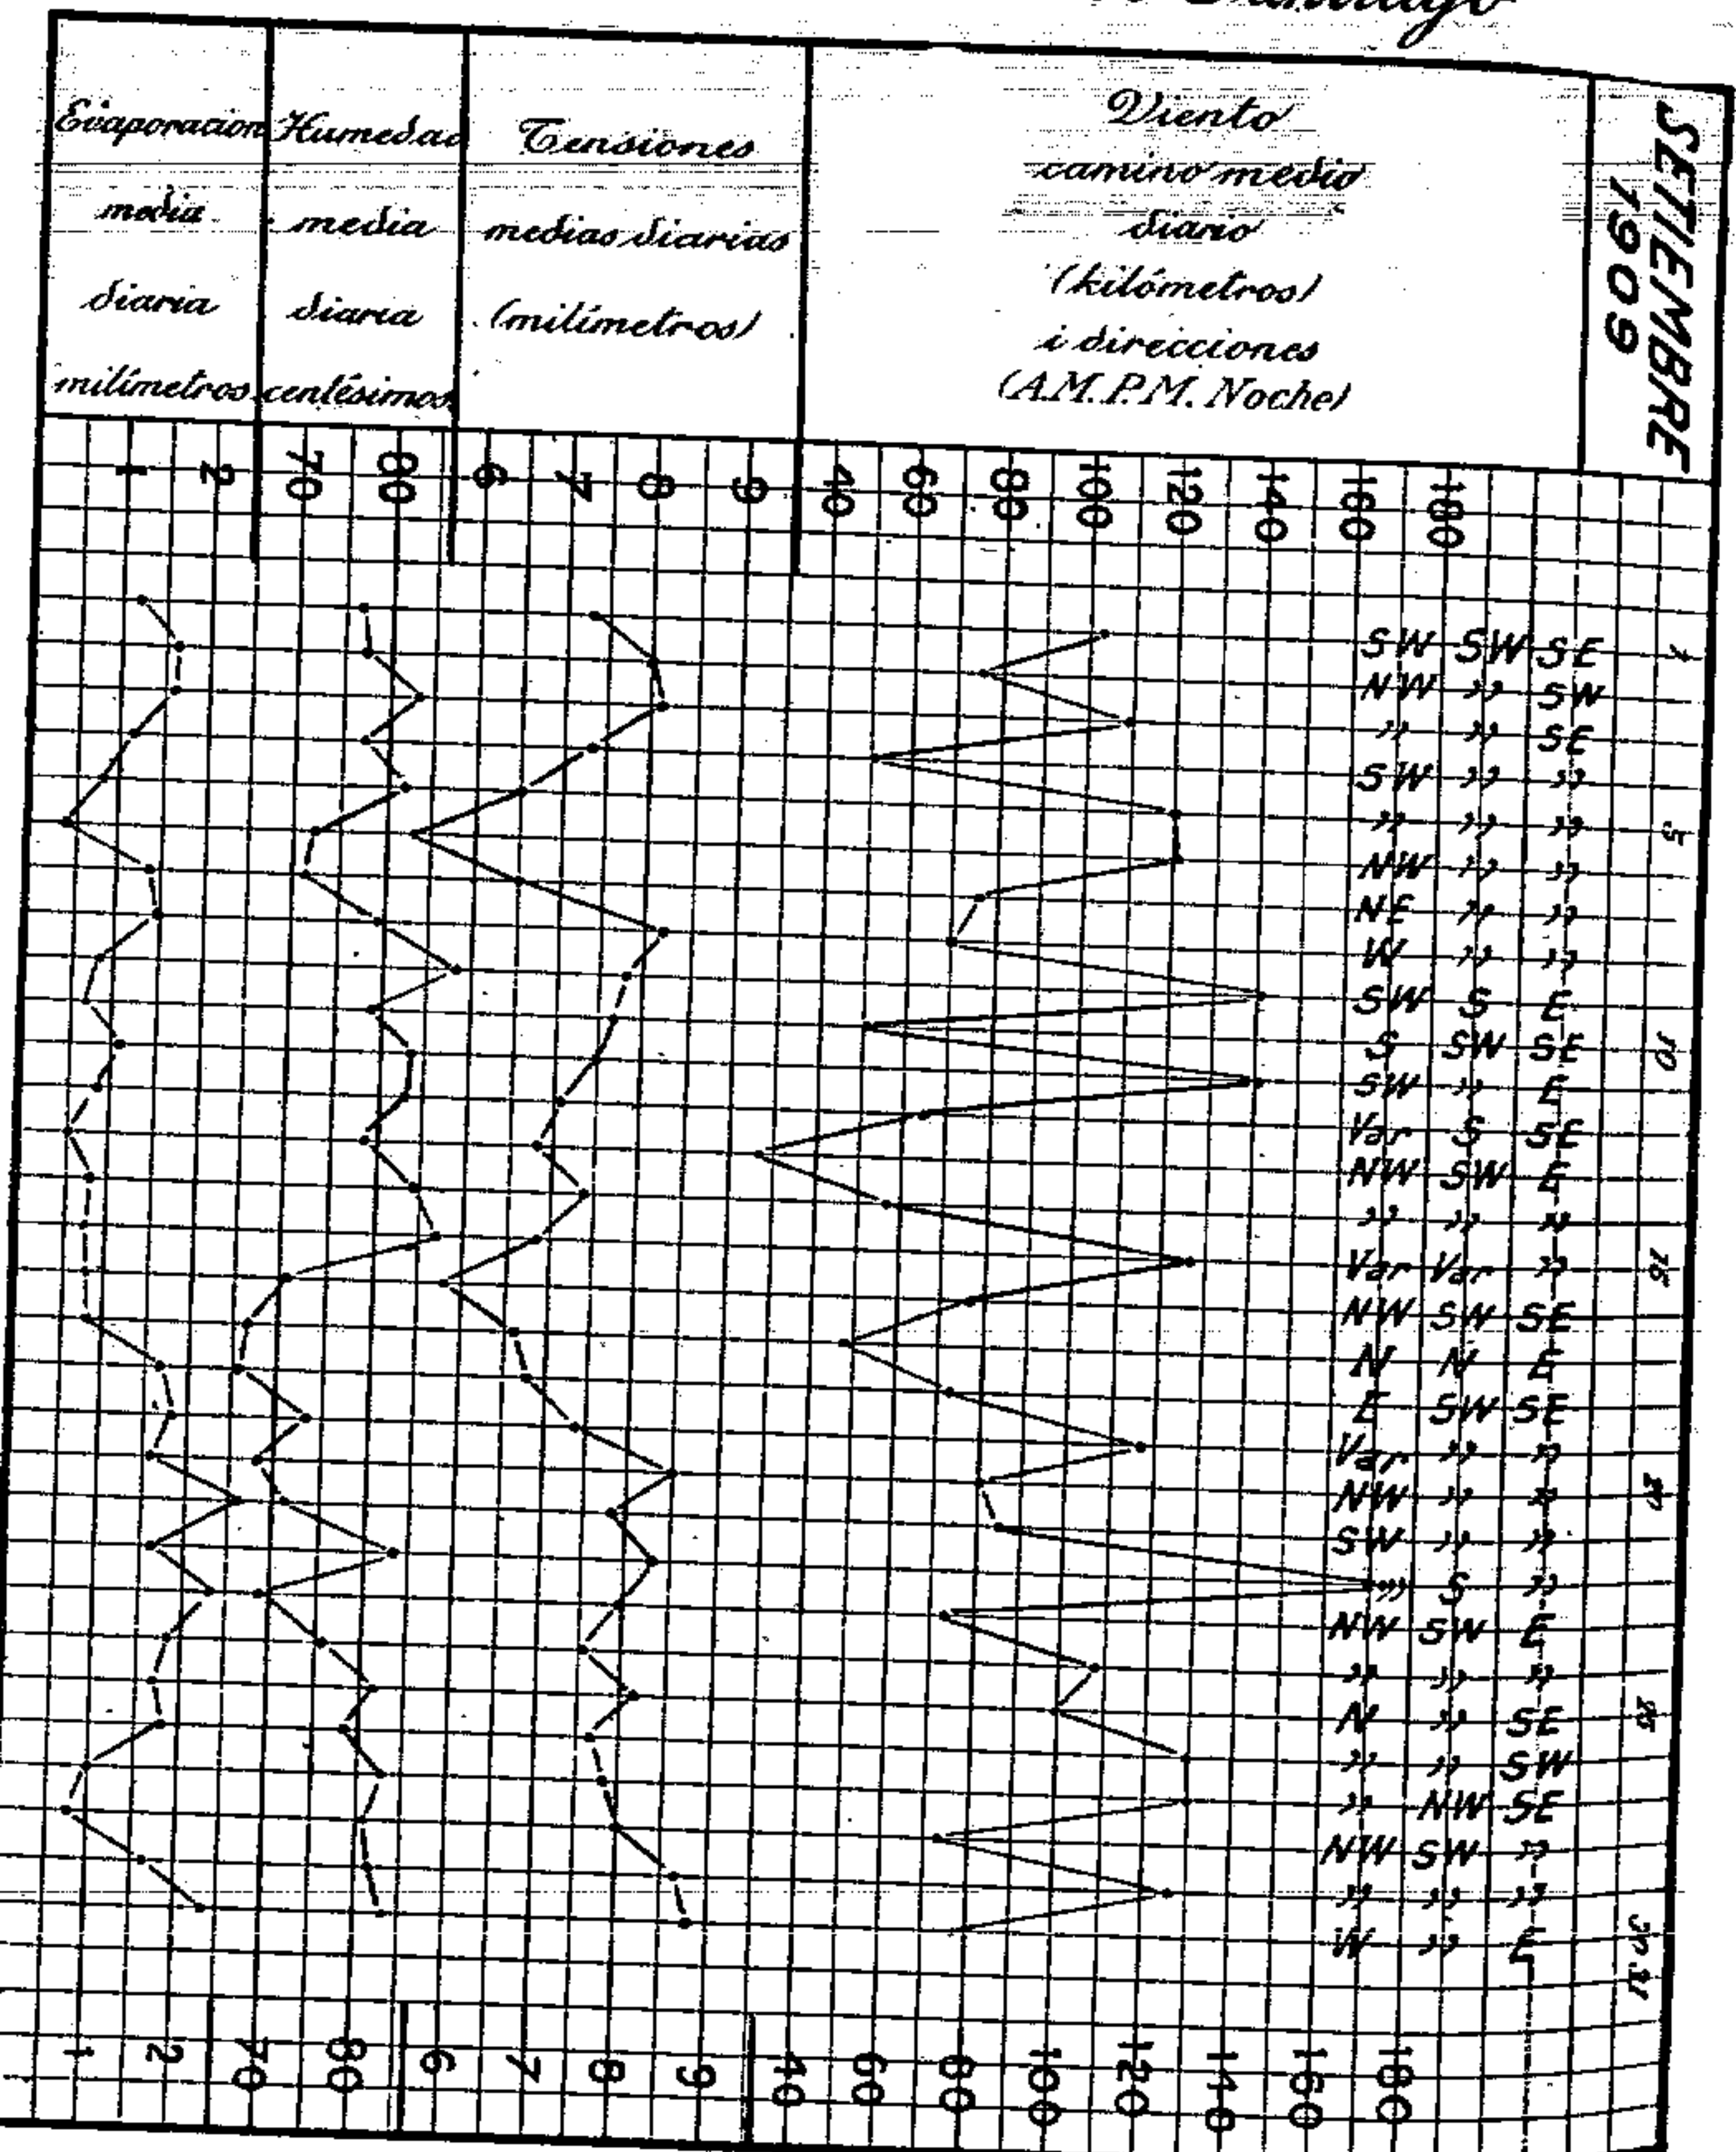 Santiago
Evaporacion
media
diaria
milímetros
Humedad
media
diaria
centésimos
Tensiones
medias diarias
(milímetros)
Viento
camino medio
diario
(kilómetros)
i direcciones
(A.M. P.M. Noche)
SETIEMBRE
1909
1 2 70 80 6 7 8 9 40 60 80 100 120 140 160 180
SW SW SE 1
NW ,, SW
,, ,, SE
SW ,, ,,
,, ,, ,, 5
NW ,, ,,
NE ,, ,,
W ,, ,,
SW S E
S SW SE 10
SW ,, E
Var S SE
NW SW E
,, ,, ,,
Var Var ,, 15
NW SW SE
N N E
E SW SE
Var ,, ,,
NW ,, ,, 20
SW ,, ,,
,,, S ,,
NW SW E
,, ,, ,,
N ,, SE 25
,, ,, SW
,, NW SE
NW SW ,,
,, ,, ,,
W ,, E 30.31
1 2 70 80 6 7 8 9 40 60 80 100 120 140 160 180